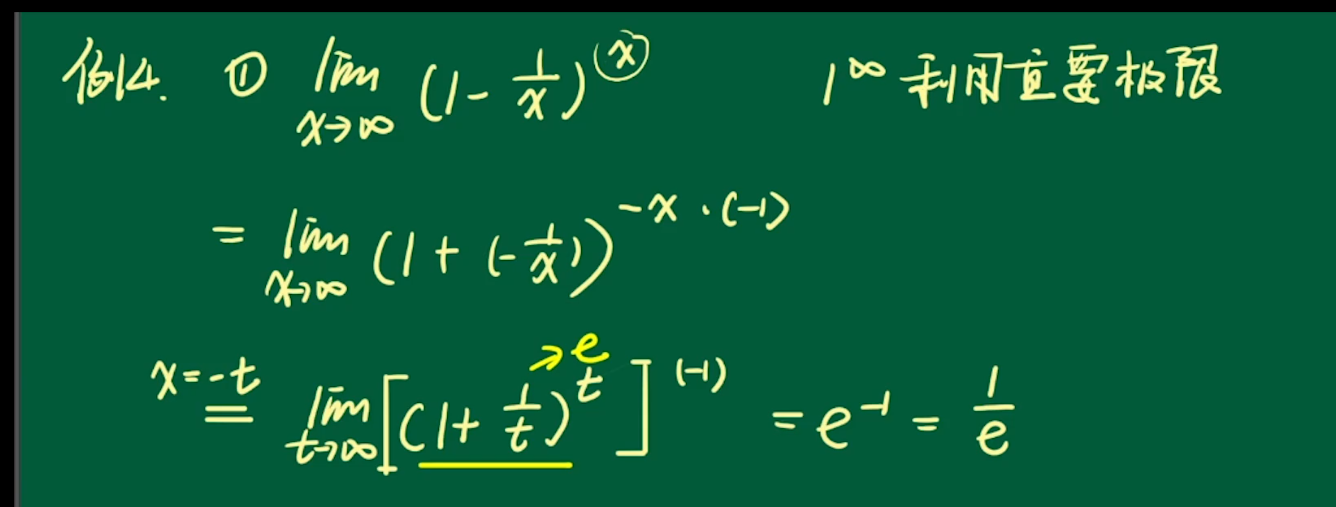 例4. ① lim x→∞ (1 - 1/x)^x 1^∞ 利用重要极限
= lim x→∞ (1 + (-1/x))^(-x·(-1))
x=-t = lim t→∞ [(1 + 1/t)^t]^(-1) → e = e^-1 = 1/e